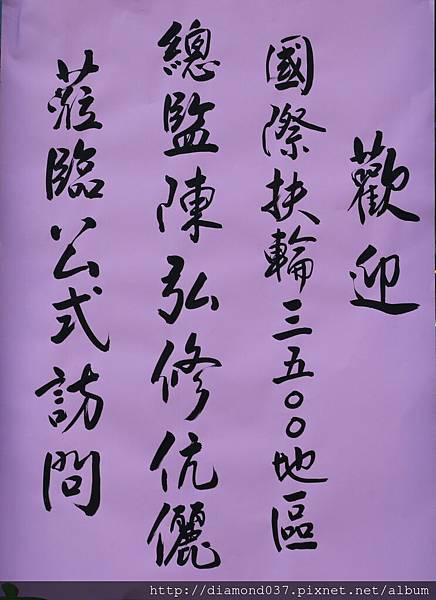 歡迎
國際扶輪三五００地區
總監陳弘修伉儷
蒞臨公式訪問
http://diamond037.pixnet.net/album